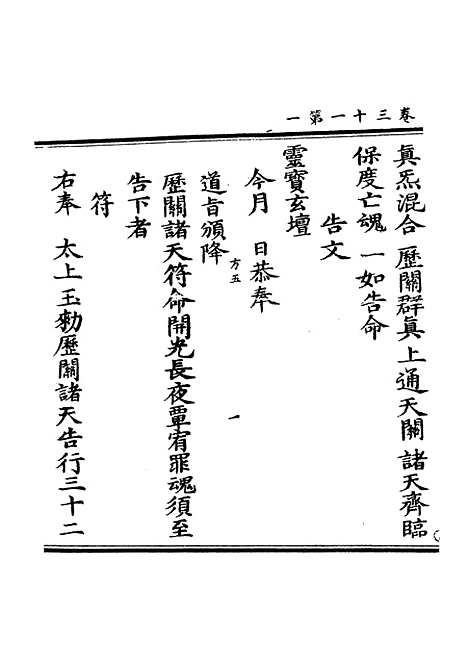 卷三十一第一
真炁混合歷關群真上通天關諸天齊臨
保度亡魂一如告命
告文
靈寶玄壇
今月　日恭奉
道旨頒降
方五　一
歷關諸天符命開光長夜覃宥罪魂須至
告下者
符
右奉　太上玉勑歷關諸天告行三十二